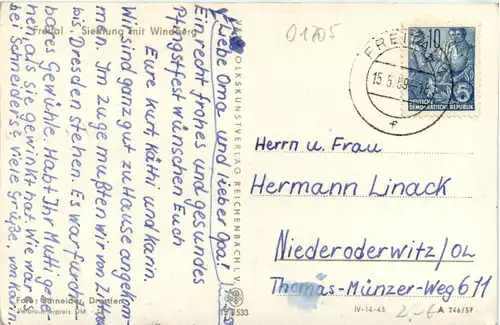 Freital - Siedlung mit Windberg
Liebe Oma und lieber Opa!
Ein recht frohes und gesundes
Pfingstfest wünschen Euch
Eure Kurt, Käthi und Karin.
Wir sind ganz gut zu Hause angekom-
men. Im Zuge mußten wir von Zittau
bis Dresden stehen. Es war furcht-
bares Gewühle. Habt Ihr Mutti gese-
hen, als sie gewinkt hat. Wie war es
bei Schneiders? Viele Grüße, von Karin
Foto: Schneider, Dresden
VEB VOLKSKUNSTVERLAG REICHENBACH
533
01705
FREITAL
15.5.59
10
DEUTSCHE
DEMOKRATISCHE REPUBLIK
Herrn u. Frau
Hermann Linack
Niederoderwitz/OL
Thomas-Münzer-Weg 611
IV-14-45
2,-
A 246/57